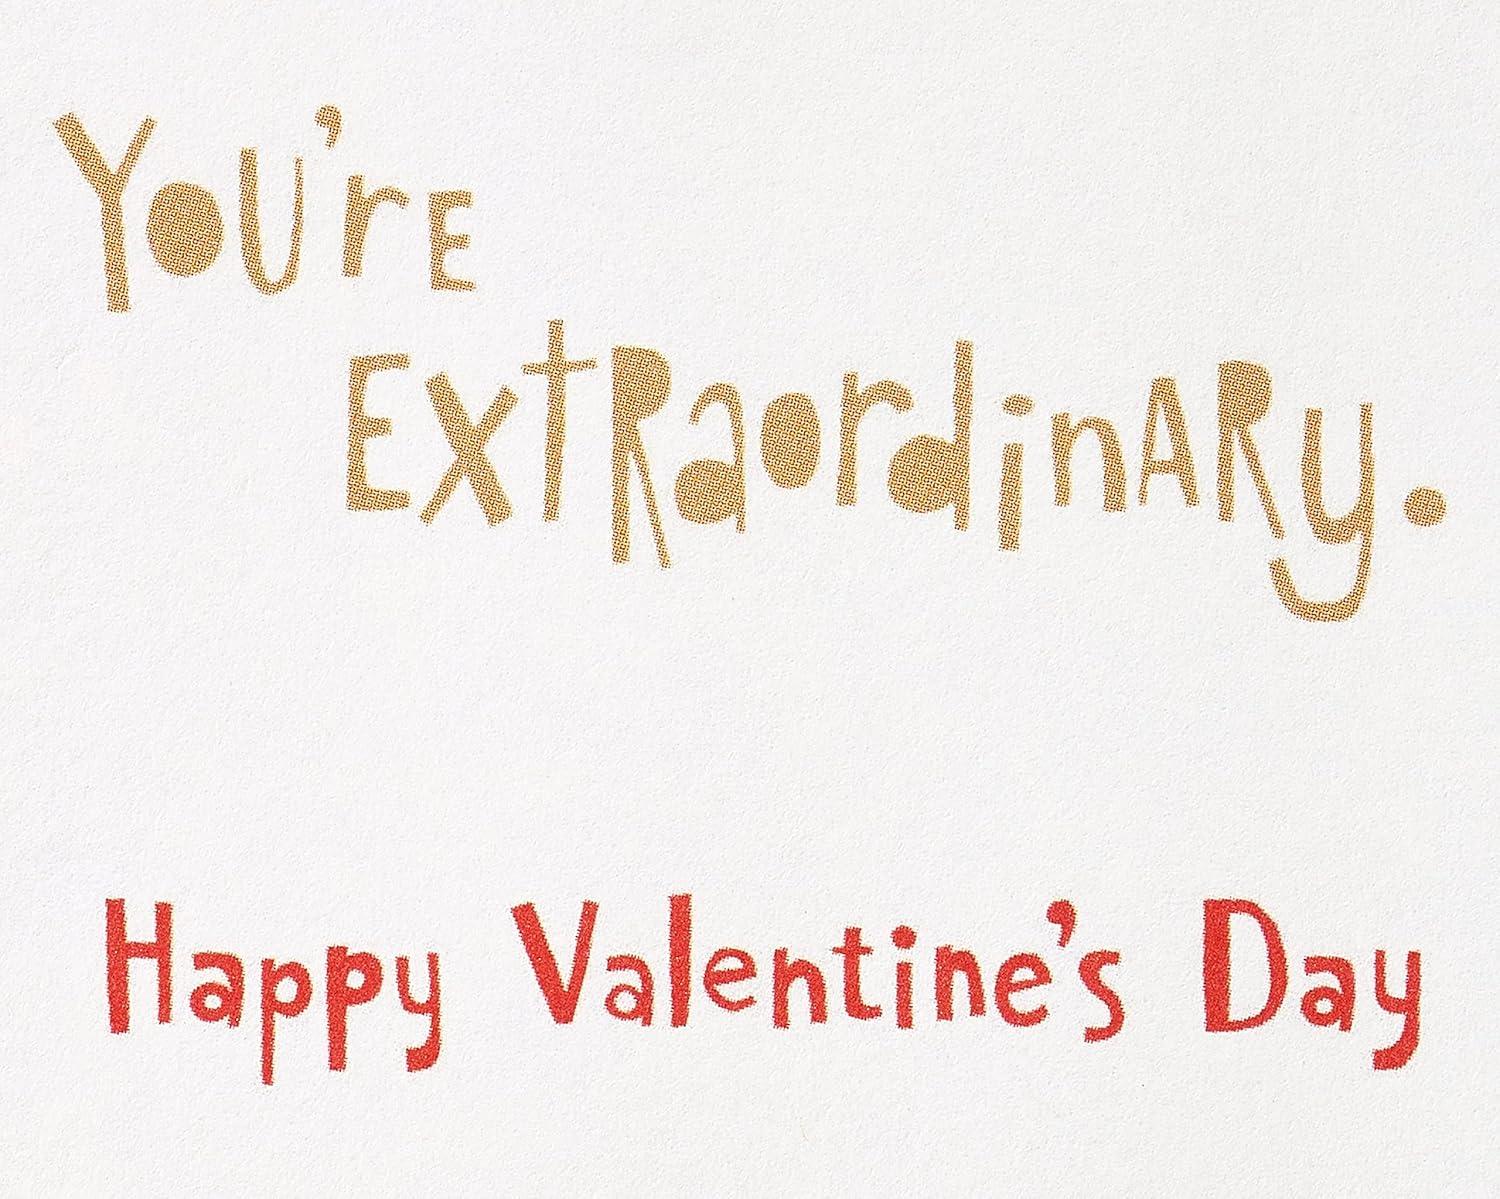 You're
Extraordinary.
Happy Valentine's Day